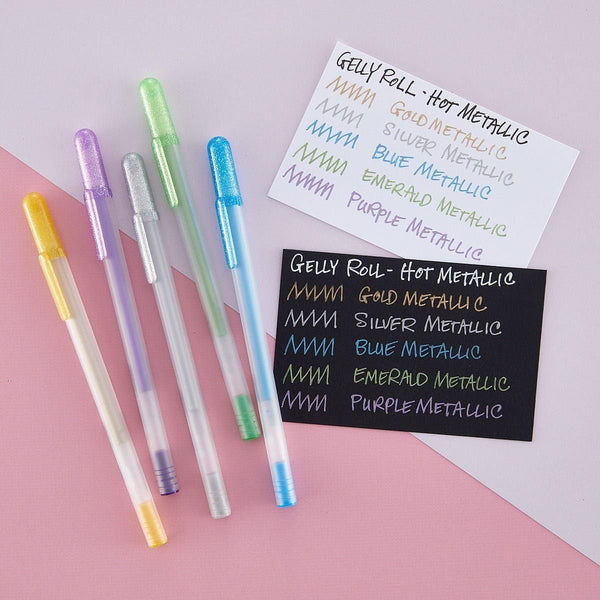 GELLY ROLL - HOT METALLIC
GOLD METALLIC
SILVER METALLIC
BLUE METALLIC
EMERALD METALLIC
PURPLE METALLIC
GELLY ROLL - HOT METALLIC
GOLD METALLIC
SILVER METALLIC
BLUE METALLIC
EMERALD METALLIC
PURPLE METALLIC